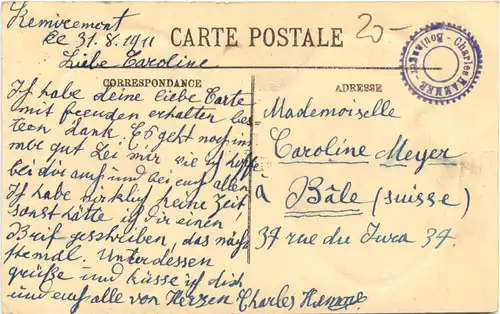 Remiremont
le 31.8.1911
20-
CARTE POSTALE
Charles HAMMEL - Boulanger
Liebe Caroline
CORRESPONDANCE
Ich habe deine liebe Carte
mit freuden erhalten bes
teen dank. Es geht noch im
mer gut bei mir wie ich hoffe
bei dir auf und bei euch allen
Ich habe wirklich keine Zeit
sonst hätte ich dir einen
Brif geschriben, das näch
stemal. Unterdessen
grüße und küsse ich dich
und euch alle von Herzen Charles
ADRESSE
Mademoiselle
Caroline Meyer
à Bâle (suisse)
37 rue du Jura 37.